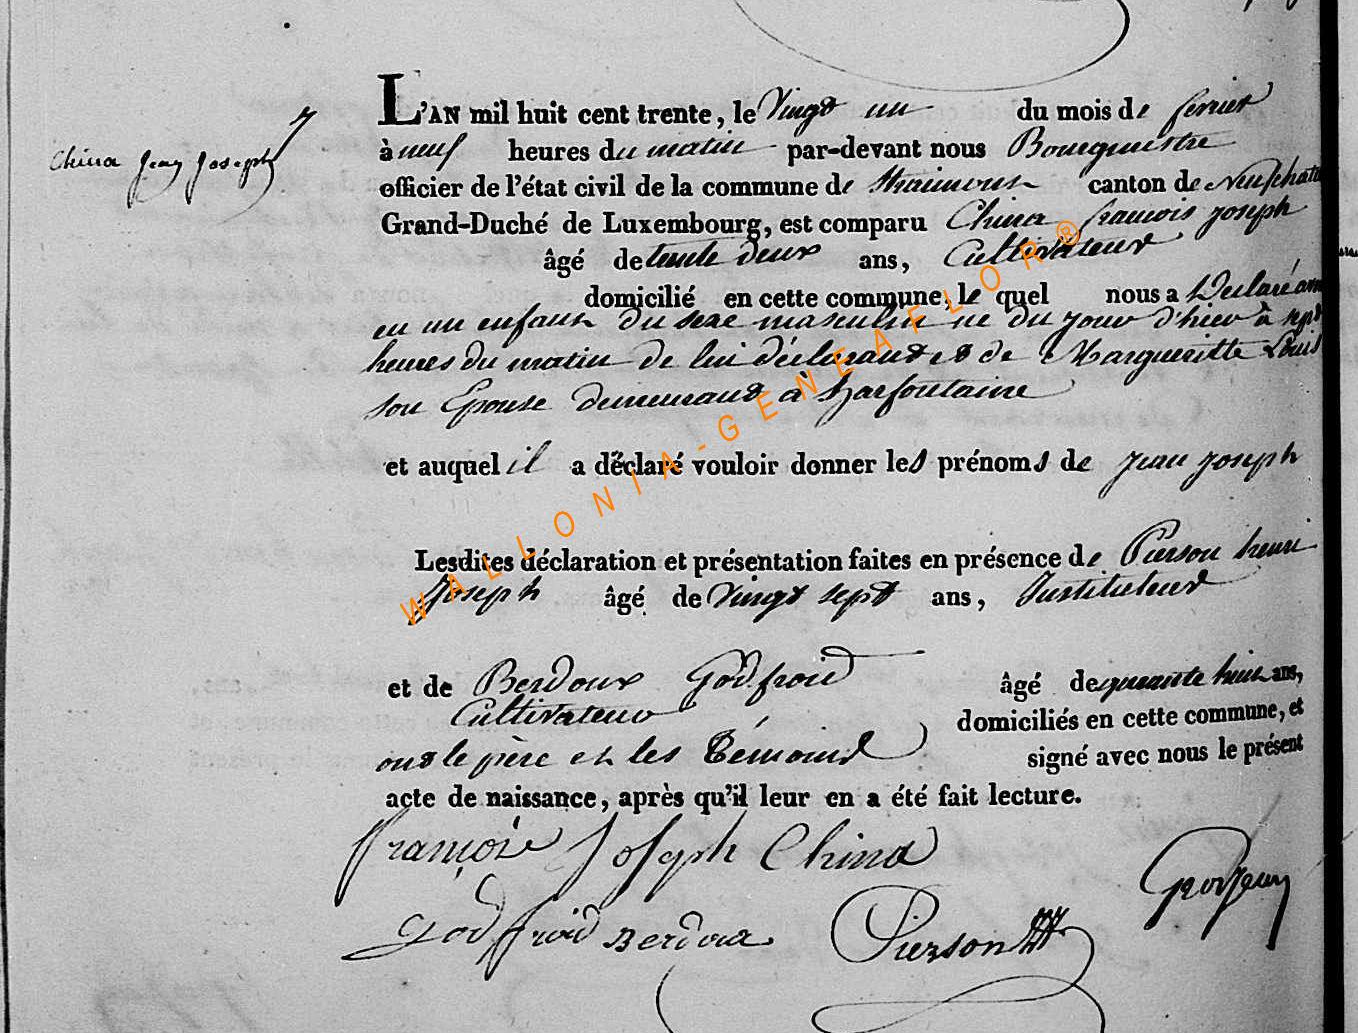 L'AN mil huit cent trente, le Vingt un du mois de fevrier
China Jean Joseph
à neuf heures du matin par-devant nous Bourguestre
officier de l'état civil de la commune de Straimont canton de Neufchate
Grand-Duché de Luxembourg, est comparu China francois joseph
âgé de trente deux ans, Cultivateur
domicilié en cette commune, le quel nous a Déclaré
eu un enfant du sexe masculin né du jour d'hier à sept
heures du matin de lui déclarant et de Margueritte Louis
son Epouse demeurant à harfontaine
et auquel il a déclaré vouloir donner les prénoms de jean joseph
Lesdites déclaration et présentation faites en présence de Pierson henri
Joseph âgé de Vingt sept ans, Instituteur
et de Berdoux Godfroid âgé de quarante huit ans,
Cultivateur domiciliés en cette commune, et
ont le père et les témoins signé avec nous le présent
acte de naissance, après qu'il leur en a été fait lecture.
françois Joseph China
Grosjean
godfroid Berdoux Pierson
WALLONIA-GENEAFLOR®